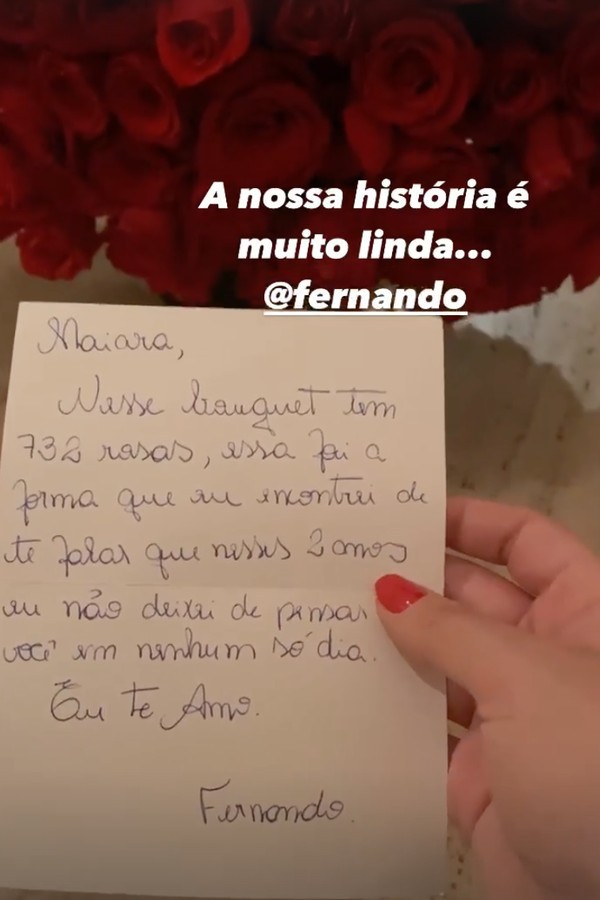 A nossa história é
muito linda...
@fernando
Maiara,
Nesse bouquet tem
732 rosas, essa foi a
forma que eu encontrei de
te falar que nesses 2 anos
eu não deixei de pensar
você em nenhum só dia.
Eu te Amo.
Fernando.